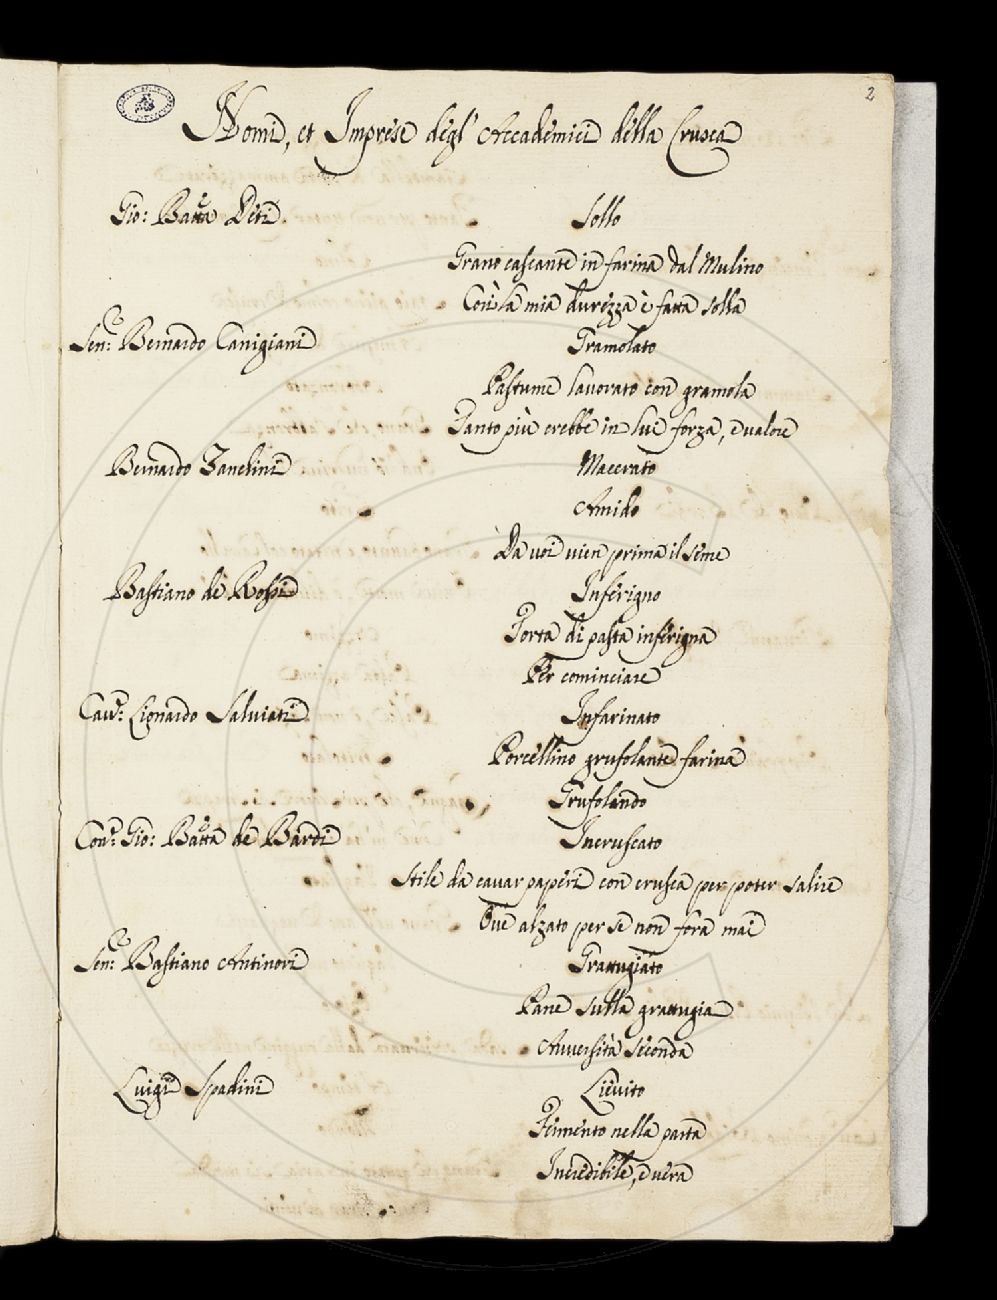 2
Nomi, et Imprese degl' Accademici della Crusca
Gio: Batta Deti Sollo
Grano cascante in farina dal Mulino
Così la mia durezza è fatta solla
Sen.r Bernardo Canigiani Gramolato
Pastume lavorato con gramola
Tanto più crebbe in lui forza, e valore
Bernardo Zanchini Macerato
Amido
Da voi vien prima il seme
Bastiano de Rossi Inferigno
Torta di pasta inferigna
Per cominciare
Cav.r Lionardo Salviati Infarinato
Porcellino grufolante farina
Grufolando
Con.e Gio: Batta de Bardi Incruscato
Stile da cavar paperi con crusca per poter salire
Ove alzato per se non fora mai
Sen.r Bastiano Antinori Grattugiato
Pane sulla grattugia
Avversità seconda
Luigi Spadini Lievito
Fimento nella pasta
Incredibile, e vera